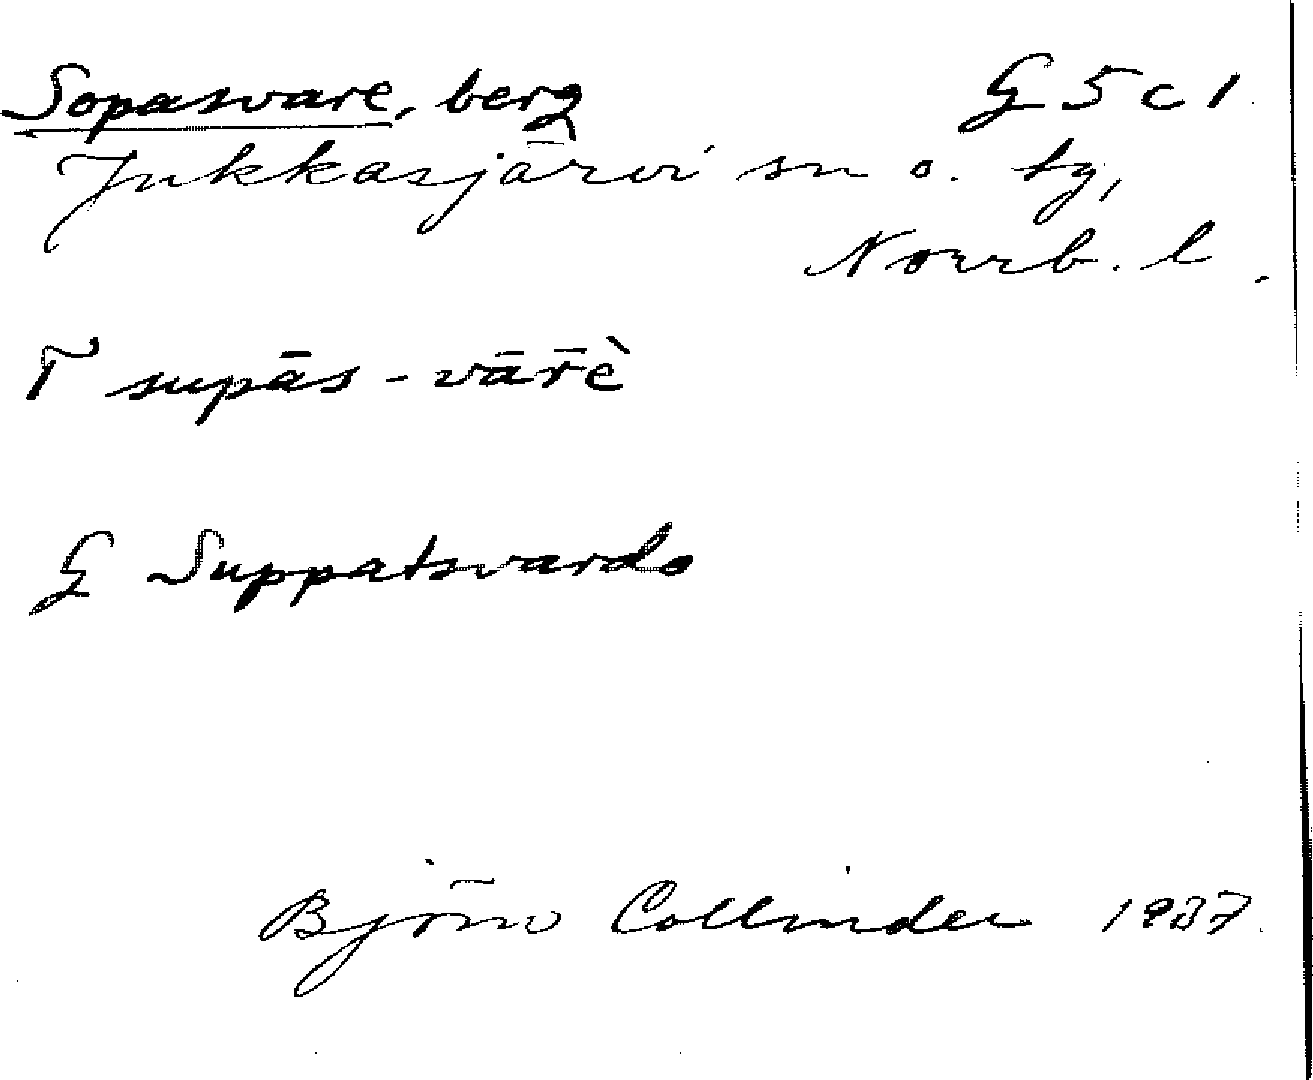 Sopasvare, berg G 5 c 1
Jukkasjärvi sn o. tg,
Norrb. l.
T supās-vār̄ḕ
G Suppatsvardo
Björn Collinder 1937